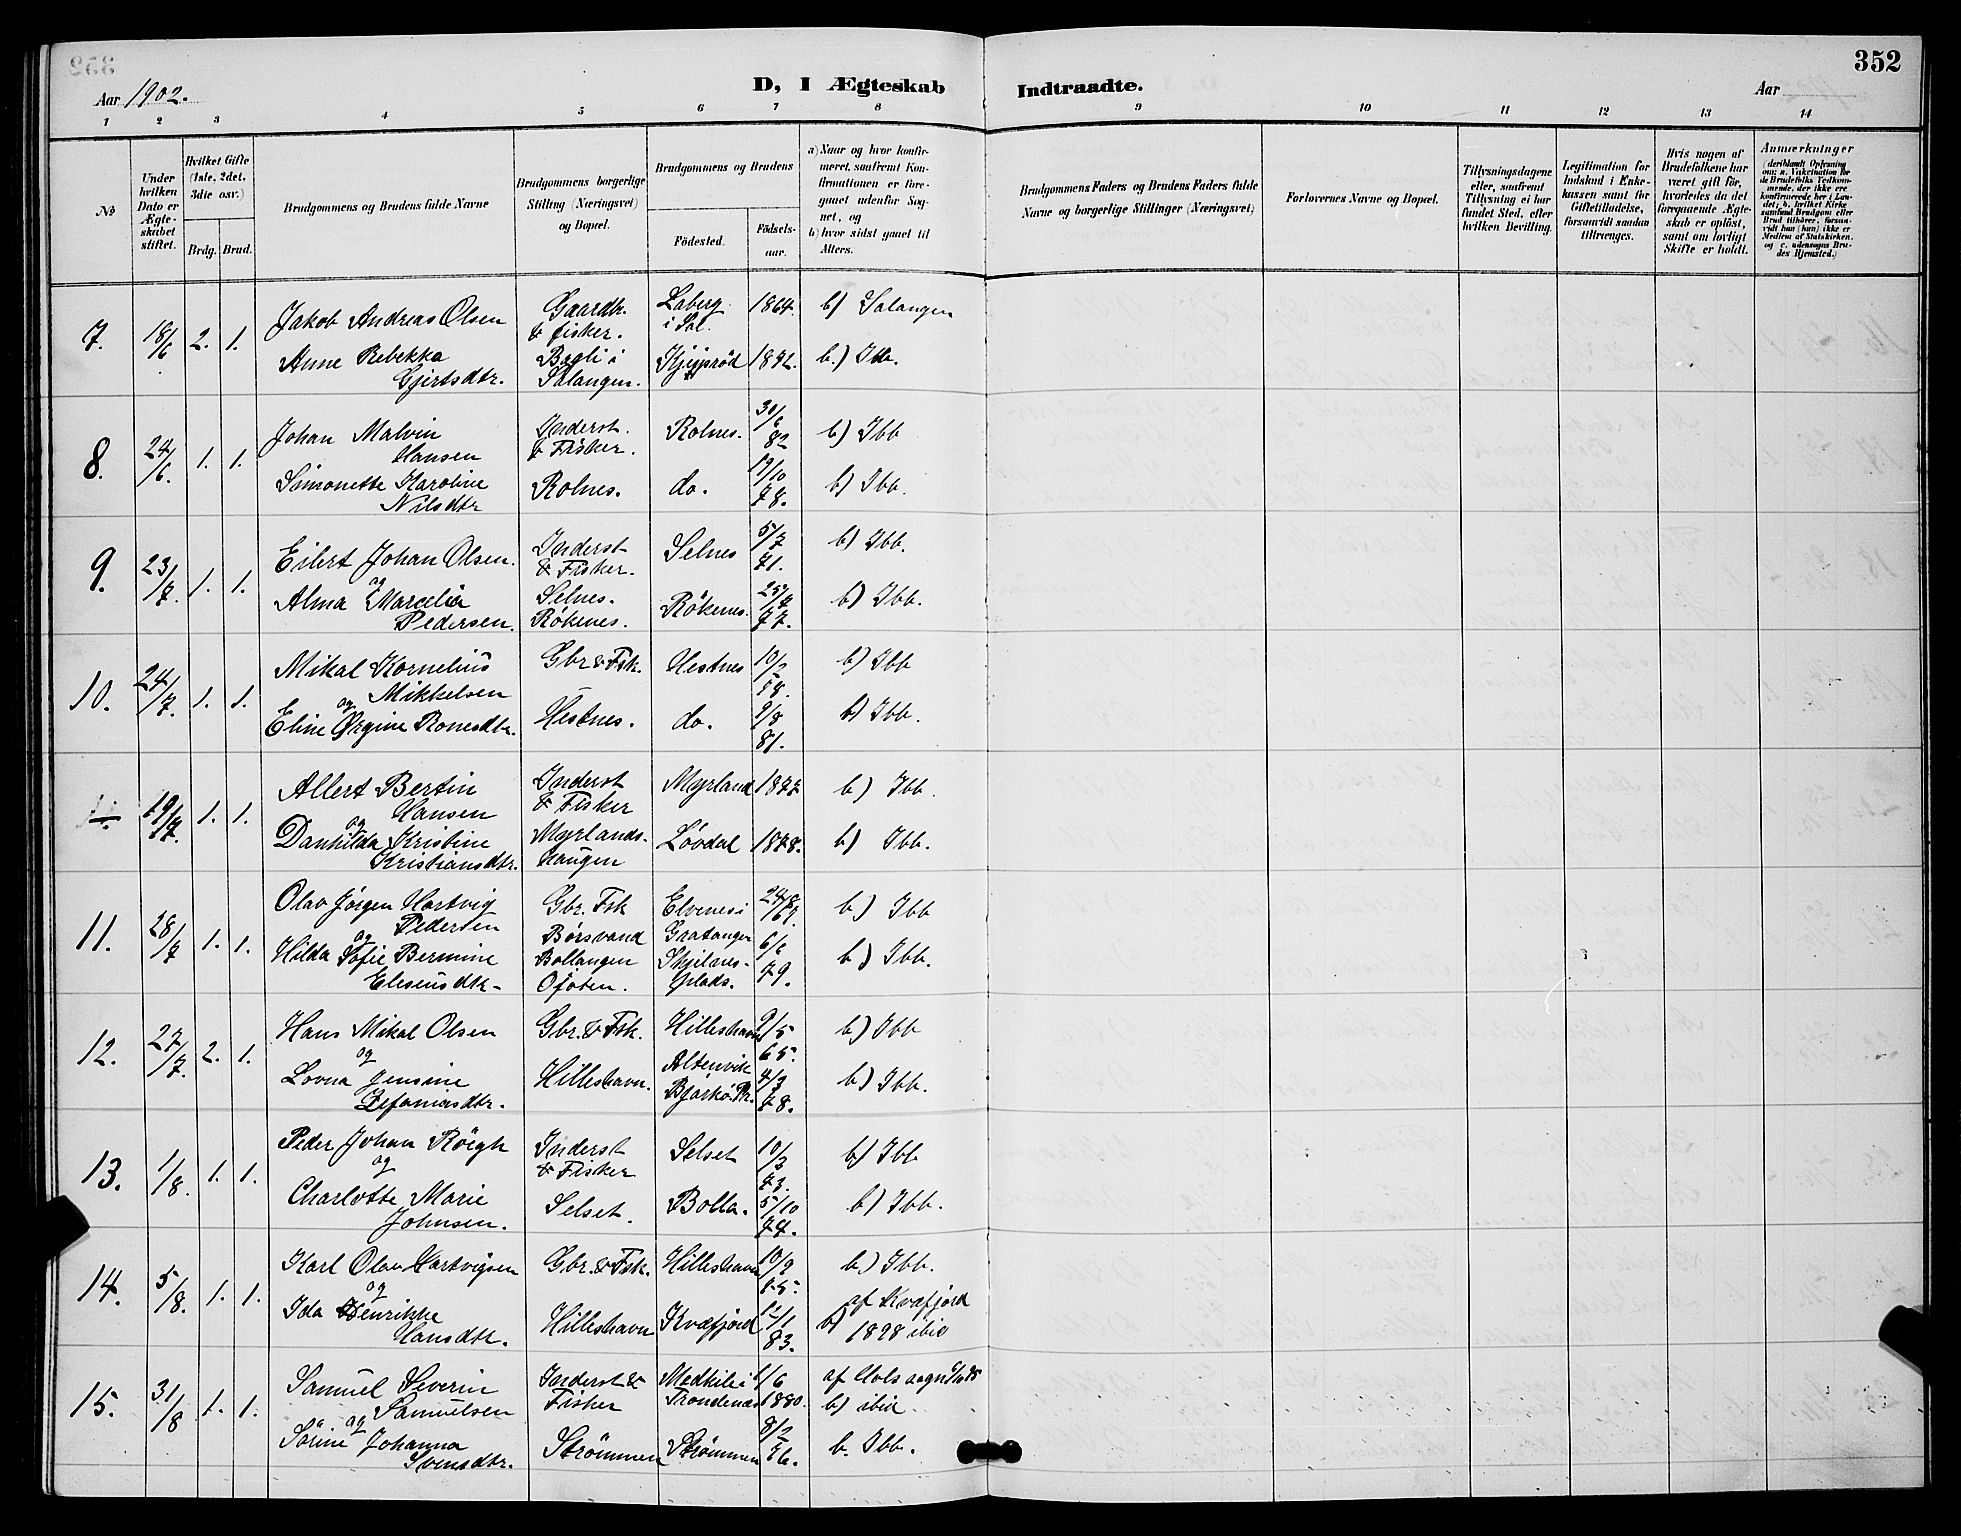 352
Aar 1902.
D, I Ægteskab Indtraadte.
Aar
1 2 3 4 5 6 7 8 9 10 11 12 13 14
No
Under hvilken Dato er Ægteskabet stiftet.
Hvilket Gifte (1ste, 2det, 3die osv.)
Brdg. Brud.
Brudgommens og Brudens fulde Navne
Brudgommens borgerlige Stilling (Næringsvei) og Bopæl.
Brudgommens og Brudens
Fødested.
Fødselsaar.
a) Naar og hvor konfirmeret, saafremt Konfirmationen er foregaaet udenfor Sognet, og
b) hvor sidst gaaet til Alters.
Brudgommens Faders og Brudens Faders fulde Navne og borgerlige Stillinger (Næringsvei)
Forlovernes Navne og Bopæl.
Tillysningsdagene eller, saafremt Tillysning ei har fundet Sted, efter hvilken Bevilling.
Legitimation for Indskud i Enkekassen samt for Giftetilladelse, forsaavidt saadan tiltrænges.
Hvis nogen af Brudefolkene har været gift før, hvorledes da det foregaaende Ægteskab er opløst, samt om lovligt Skifte er holdt.
Anmærkninger
(deriblandt Oplysning om: a. Vakcination for de Brudefolks Vedkommende, der ikke ere konfirmerede her i Landet; b. hvilket Kirkesamfund Brudgom eller Brud tilhører, forsaavidt han (hun) ikke er Medlem af Statskirken, og c. udensogns Brudes Hjemsted.)
7. 18/6 2. 1. Jakob Andreas Olsen Gaardbr. & fisker. Laberg i Sal. 1864. b) Salangen
Anne Rebekka Gjertsdtr. Salangen. 18 b.) Ibb.
8. 24/6. 1. 1. Johan Malvin Hansen Inderst. & Fisker. Rolnes. 30/6 82 b) Ibb
Simonette Karoline Nilsdtr Rolnes. do. 19/10 78. b) Ibb.
9. 23/7. 1. 1. Eilert Johan Olsen. Inderst & Fisker. Selnes 5/7 71. b) Ibb.
og Alma Marcelia Pedersen. Selnes. Rökenes. Rökenes. 25/7 77. b) Ibb.
10. 24/7. 1. 1. Mikal Kornelius Mikkelsen Gbr & Fsk. Hestnes 10/2 b) Ibb
og Eline Ørgine Ronesdtr. Hestnes. do. 9/8 81. b) Ibb.
19/7. 1. 1. Albert Bertin Hansen Inderst & Fisker Myrland 1877 b) Ibb.
og Danhilda Kristine Kristiansdtr. Myrlandshaugen Lövdal 1878. b) Ibb.
11. 28/7 1. 1. Olav Jörgen Hartvig Pedersen Gbr. Fsk Elvenes i Gratangen 24/8 69. b.) Ibb
og Hilda Sofie Bermine Eliseusdtr- Börsvand Ballangen Ofoten. Skjelnes-Plads. 6/6 79. b.) Ibb.
12. 27/7. 2. 1. Hans Mikal Olsen Gbr. & Fsk. Hilleshavn 9/5 65. b) Ibb
og Lovna Jensine Zefaniasdtr. Hilleshavn. Altenvik Bjarkö Pr. 4/3 78. b) Ibb.
13. 1/8. 1. 1. Peder Johan Röegh Inderst & Fisker Selset 10/3 73. b) Ibb
og Charlotte Marie Johnsen. Selset. Bolla. 5/10 74. b) Ibb.
14. 5/8. 1. 1. Karl Olav Hartvigsen Gbr. & Fsk. Hilleshavn 10/9 75. b) Ibb.
og Ida Henrikke Hansdtr. Hilleshavn Kvæfjord 12/1 83. af Kvæfjord b) 1898 ibid
15. 31/8 1. 1. Samuel Severin Samuelsen Inderst & Fisker Medkile i Trondenes 1/6 1880. b) ibid
og Sörine Johanna Svensdtr. Strömmen Strömmen 8/2 76. b. Ibb.